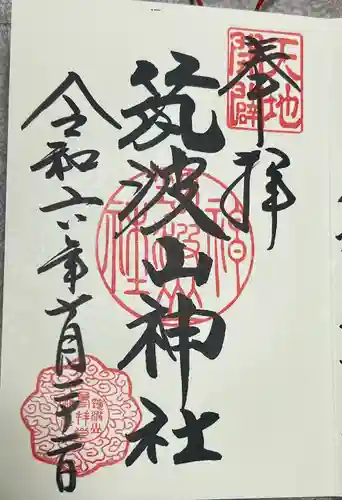 奉拝
天地開闢
筑波山神社
令和六年十一月二十二日